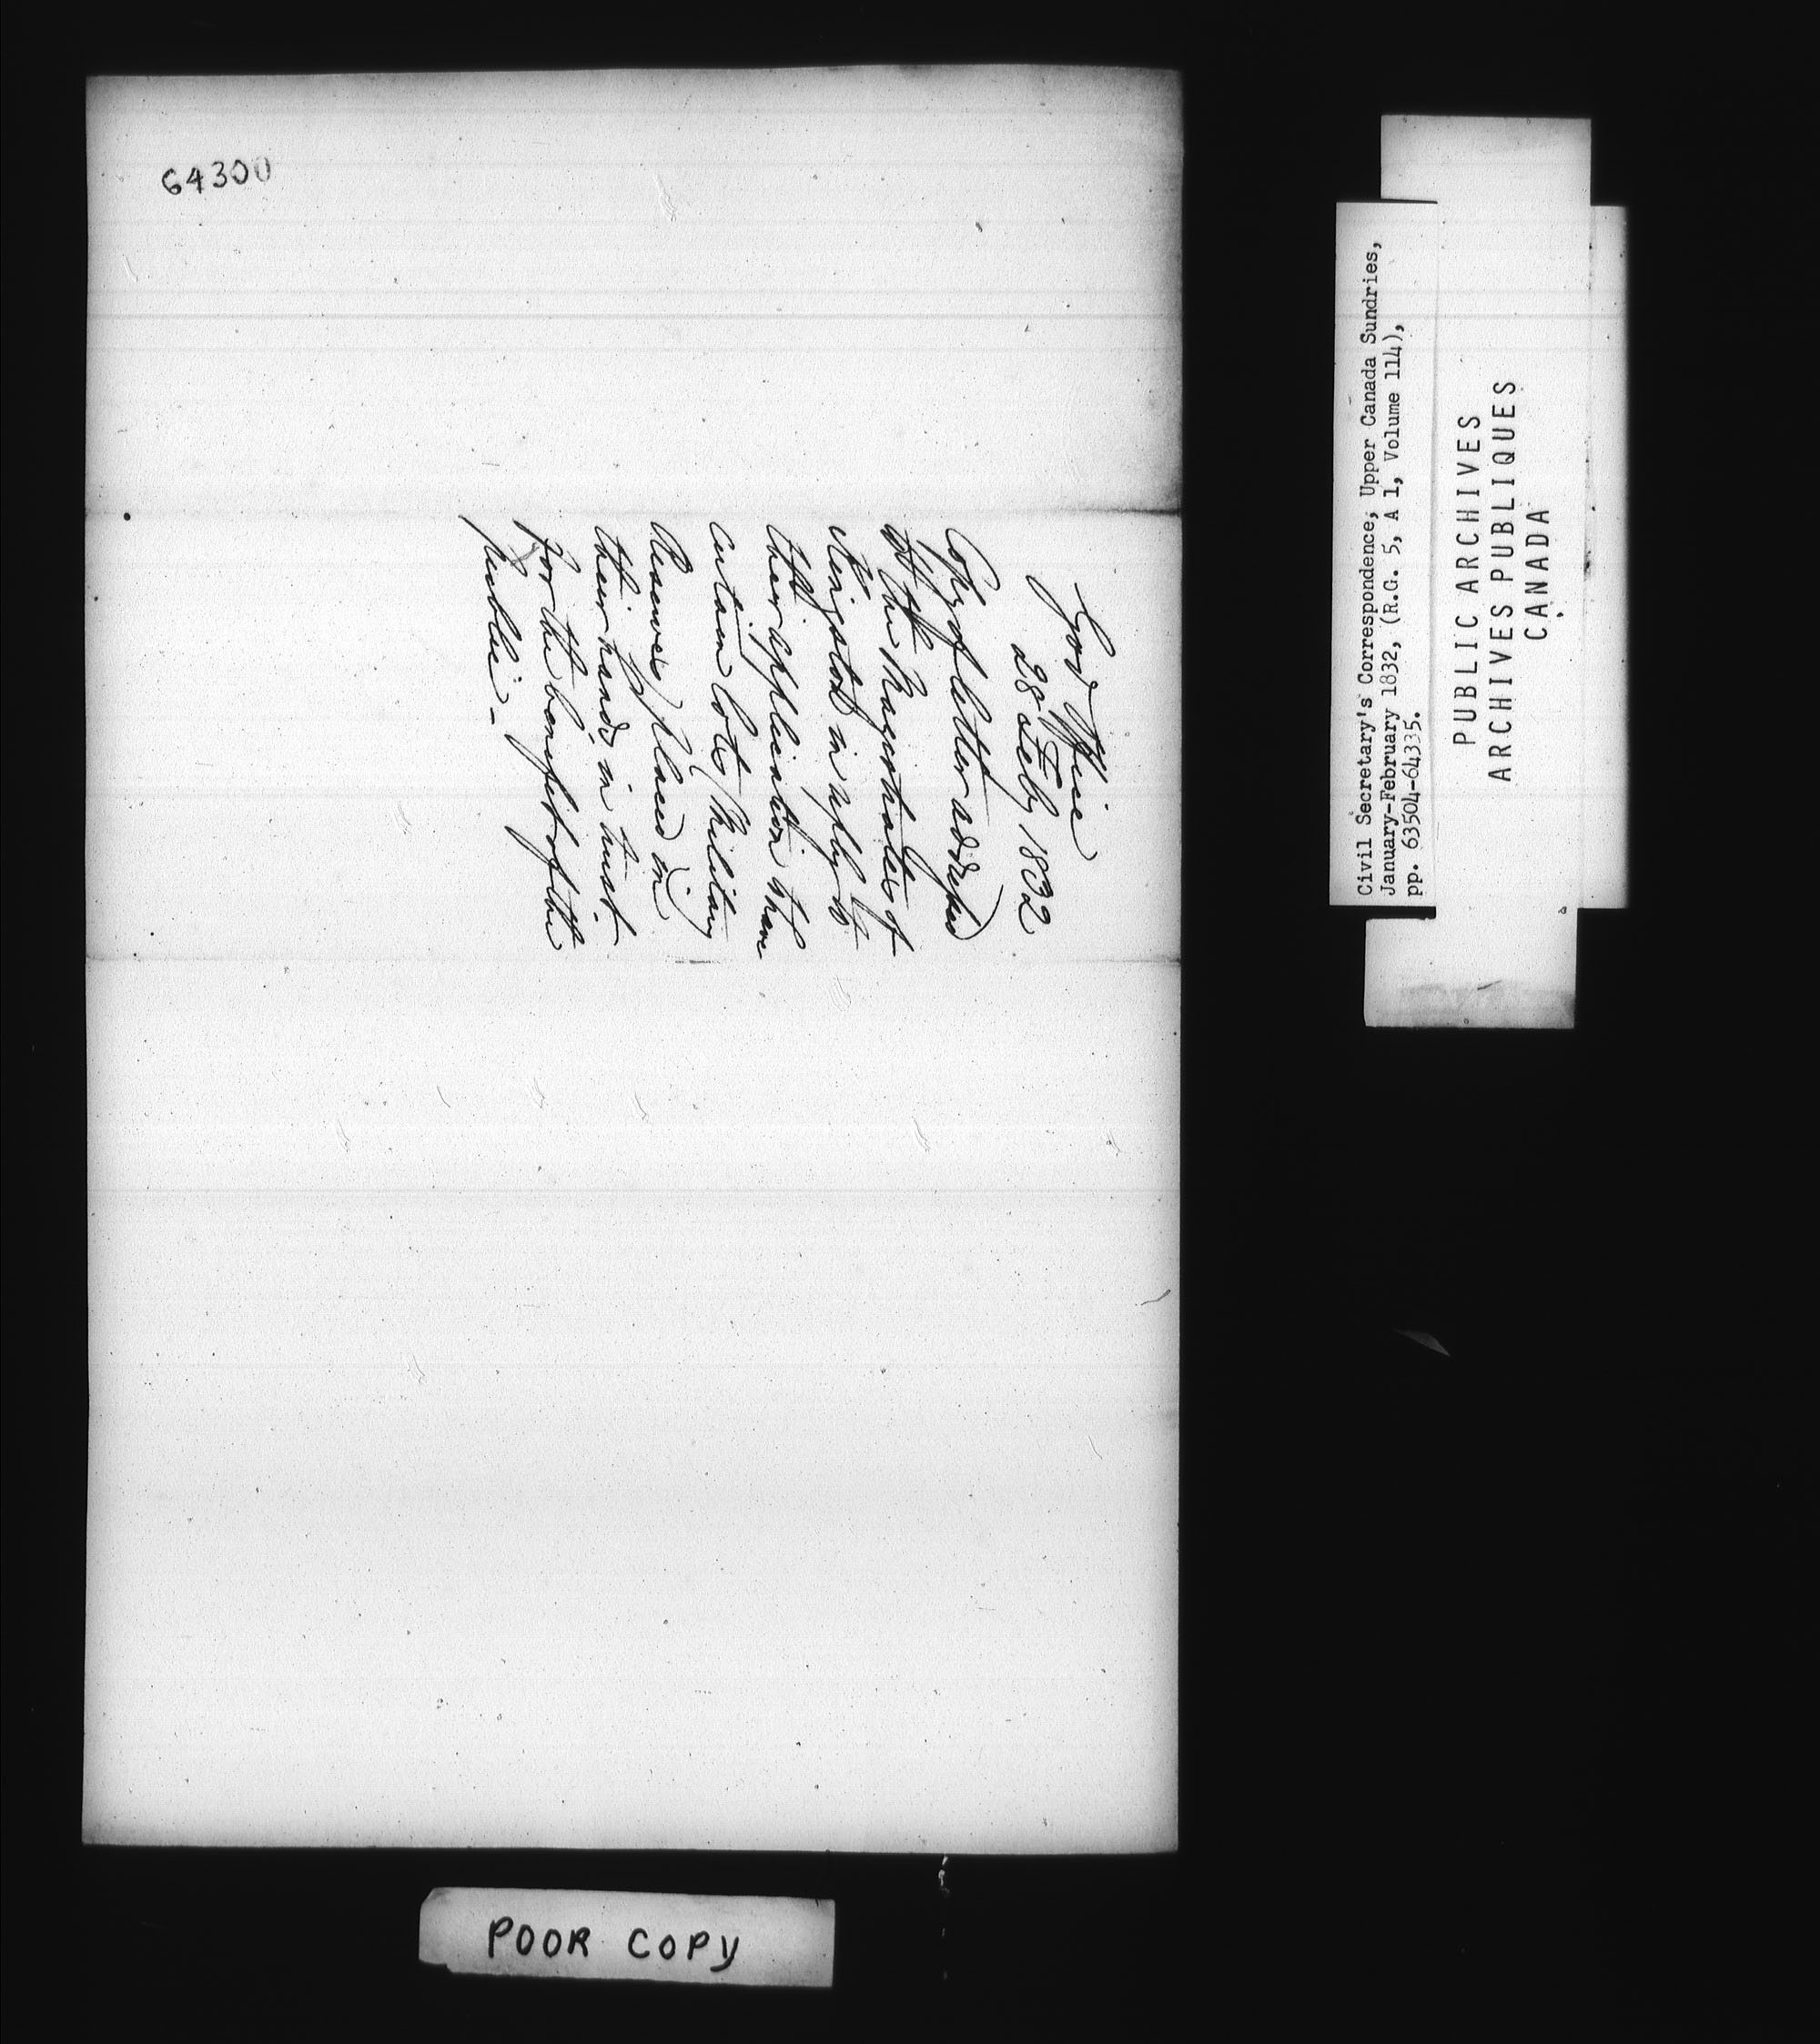 64300
Govt Office
28th Feby 1832
Copy of letter addressed
to the Magistrates of
Kingston in reply to
their application to have
certain lots (Military
Reserves) placed in
their hands in trust
for the benefit of the
public –
Civil Secretary's Correspondence, Upper Canada Sundries,
January-February 1832, (R.G. 5, A 1, Volume 114),
pp. 63504-64335.
PUBLIC ARCHIVES
ARCHIVES PUBLIQUES
CANADA
POOR COPY